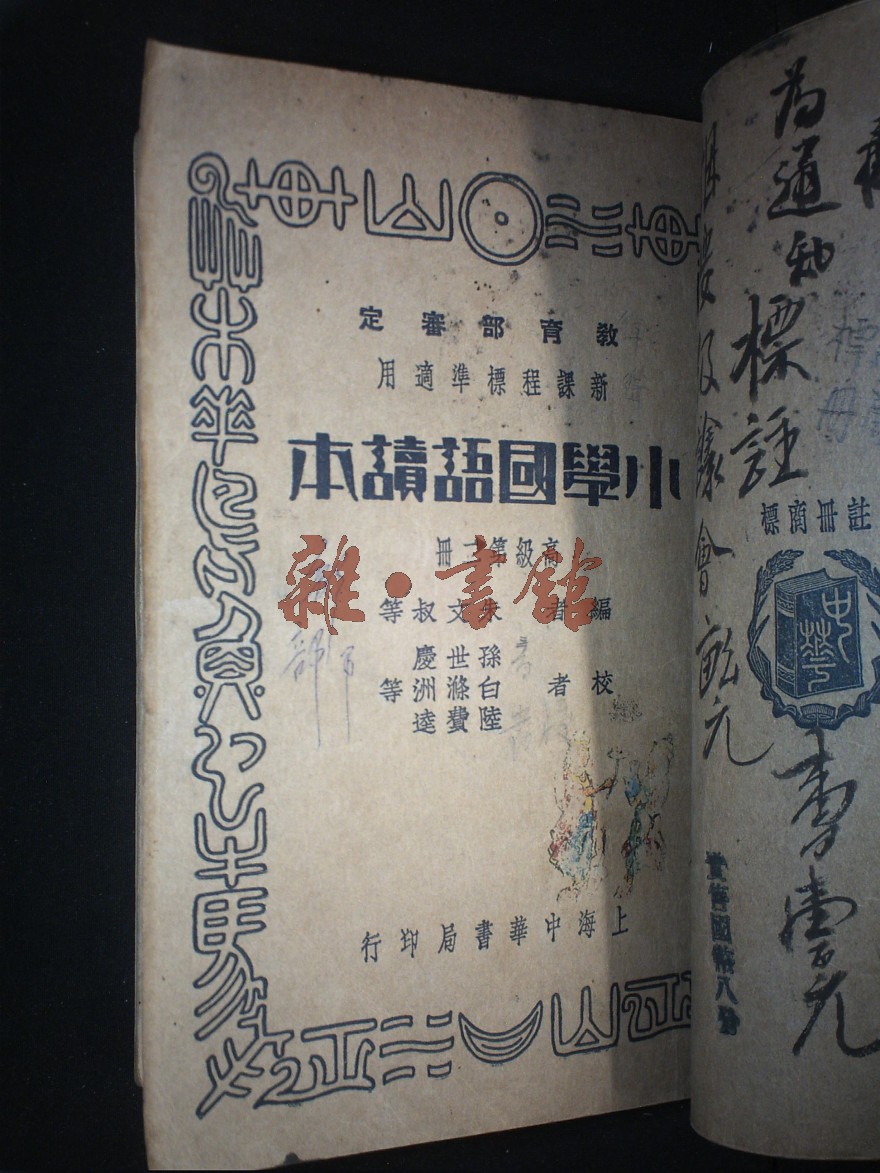 教育部審定
新課程標準適用
小學國語讀本
高級第 冊
編者 朱文叔等
校者 孫世慶
白滌洲等
陸費逵
上海中華書局印行
雜·書館
為通知
標註
會
元
註冊商標
中華
李壹元
實售國幣八